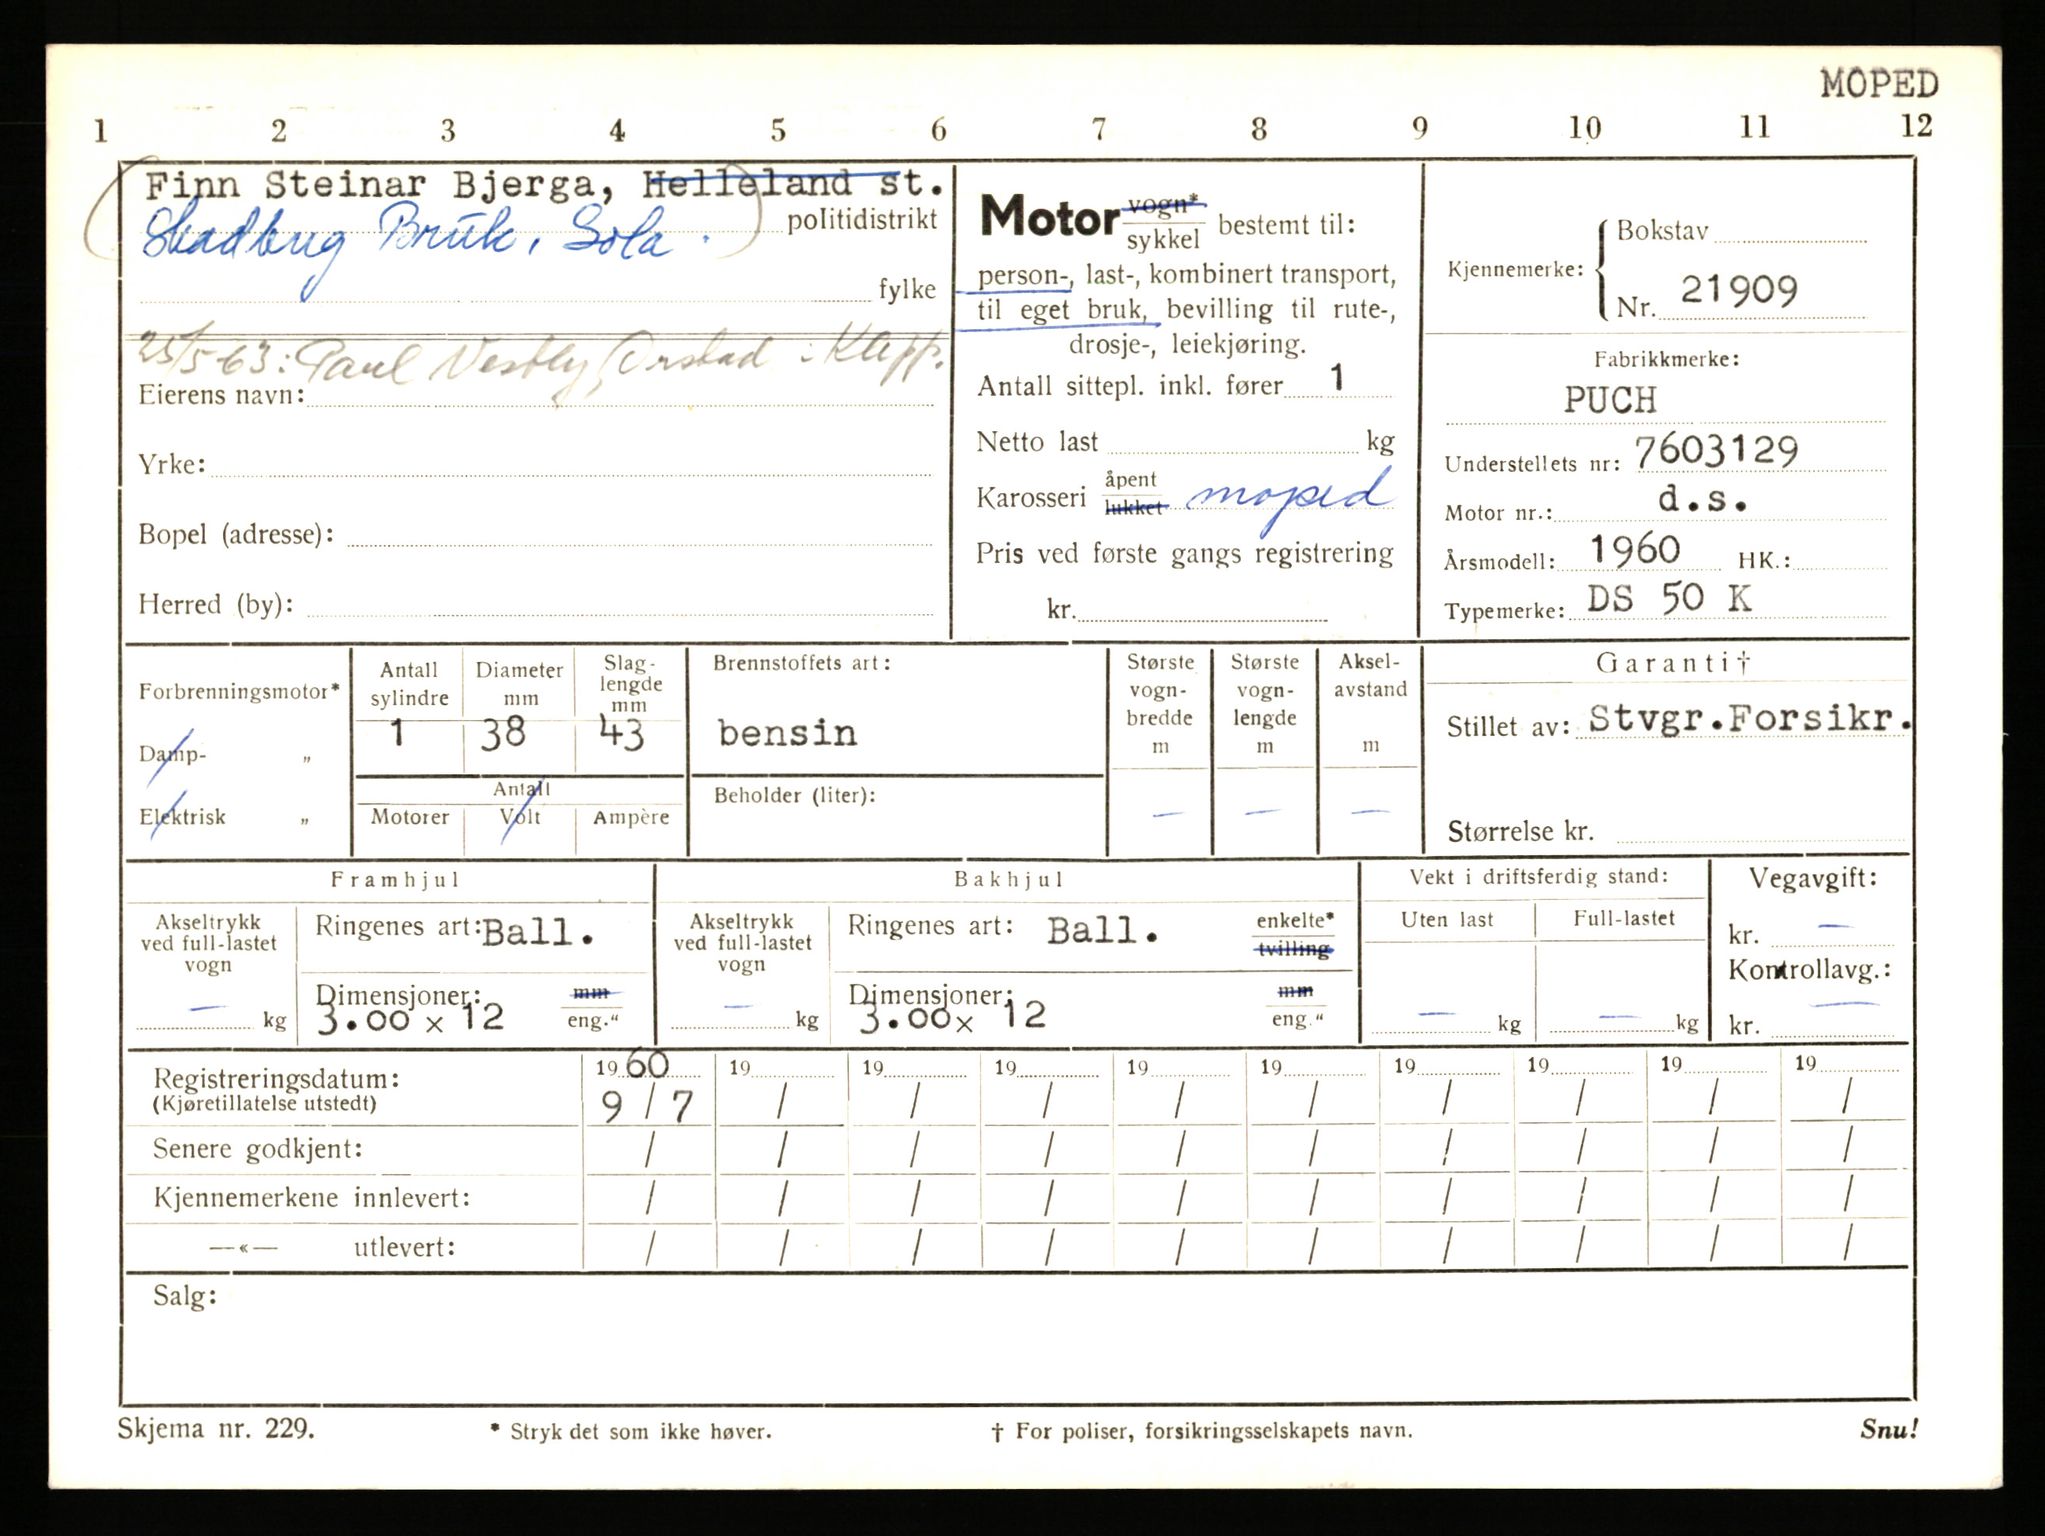 MOPED
1 2 3 4 5 6 7 8 9 10 11 12
Finn Steinar Bjerga, Helleland st.
Skadberg Bruk, Sola.
politidistrikt
fylke
25/5-63: Paul Vestly, Orstad i Klepp.
Eierens navn:
Yrke:
Bopel (adresse):
Herred (by):
Motor vogn*
sykkel bestemt til:
person-, last-, kombinert transport,
til eget bruk, bevilling til rute-,
drosje-, leiekjøring.
Antall sittepl. inkl. fører 1
Netto last kg
Karosseri åpent
lukket moped
Pris ved første gangs registrering
kr.
Kjennemerke: Bokstav
Nr. 21909
Fabrikkmerke:
PUCH
Understellets nr: 7603129
Motor nr.: d.s.
Årsmodell: 1960 HK.:
Typemerke: DS 50 K
Forbrenningsmotor*
Damp- „
Elektrisk „
Antall sylindre
1
Diameter mm
38
Slag-
lengde
mm
43
Antall
Motorer Volt Ampère
Brennstoffets art:
bensin
Beholder (liter):
Største
vogn-
bredde
m
—
Største
vogn-
lengde
m
—
Aksel-
avstand
m
—
Garanti†
Stillet av: Stvgr.Forsikr.
Størrelse kr.
Framhjul
Akseltrykk
ved full-lastet
vogn
— kg
Ringenes art: Ball.
Dimensjoner: mm
3.00 x 12 eng."
Bakhjul
Akseltrykk
ved full-lastet
vogn
— kg
Ringenes art: Ball. enkelte*
tvilling
Dimensjoner: mm
3.00x 12 eng."
Vekt i driftsferdig stand:
Uten last Full-lastet
— kg — kg
Vegavgift:
kr. —
Kontrollavg.:
—
kr.
Registreringsdatum: 1960 19 19 19 19 19 19 19 19 19
(Kjøretillatelse utstedt) 9 / 7 / / / / / / / / /
Senere godkjent: / / / / / / / / / /
Kjennemerkene innlevert: / / / / / / / / / /
—«— utlevert: / / / / / / / / / /
Salg:
Skjema nr. 229. * Stryk det som ikke høver. † For poliser, forsikringsselskapets navn. Snu!